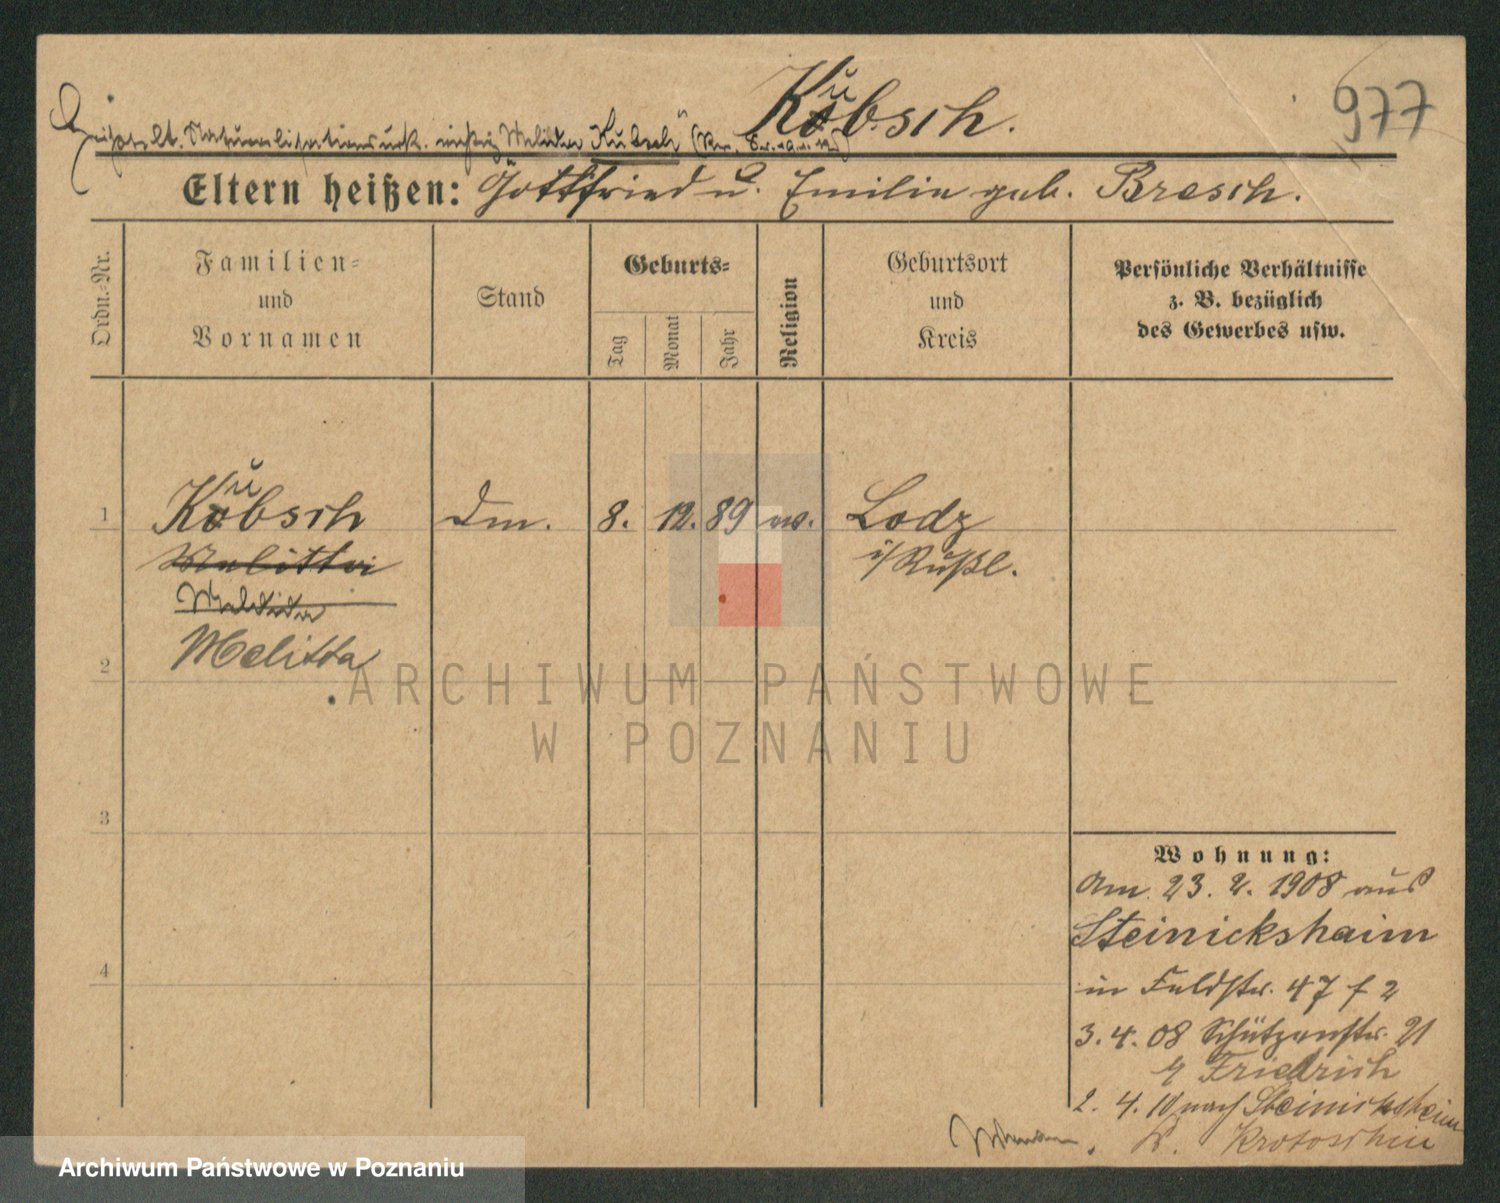 Kübsch.
977
lt. Naturalisationsurk. richtig Melitta Kubsch
Eltern heißen: Gottfried u. Emilie geb. Bresch.
Ordn.-Nr.
Familien-
und
Vornamen
Stand
Geburts-
Tag
Monat
Jahr
Religion
Geburtsort
und
Kreis
Persönliche Verhältnisse
z. B. bezüglich
des Gewerbes usw.
1
Kübsch
Dm.
8.
12.
89
ev.
Lodz
i/Rußl.
Melitta
Melitta
2
Melitta
ARCHIWUM PAŃSTWOWE
W POZNANIU
3
Wohnung:
Am 23. 2. 1908 aus
Steinickshaim
in Feldstr. 47 f 2
4
3. 4. 08 Schützenstr. 21
Friedrich
2. 4. 10 nach Steinicksheim
K. Krotoschin
Archiwum Państwowe w Poznaniu